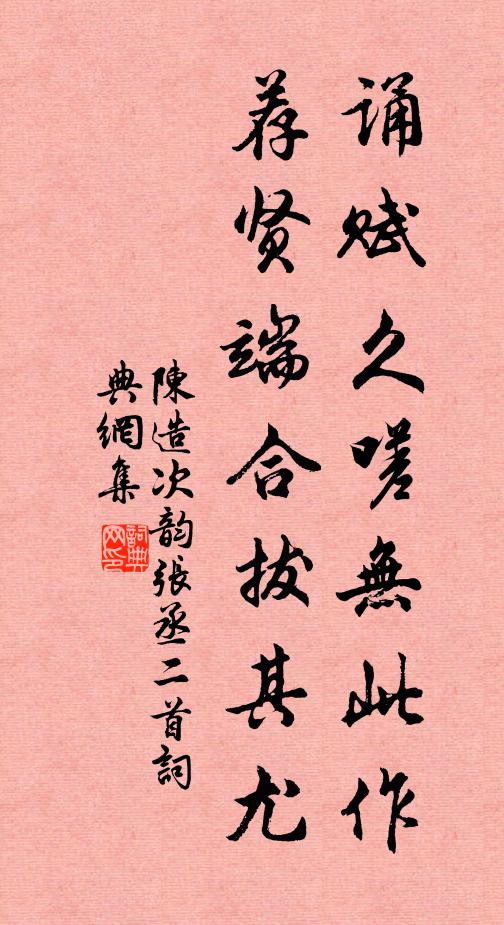 诵赋久嗟無此作
荐贤端合拔其尤
陳造次韵張丞二首詞
典網集
詞典
网印